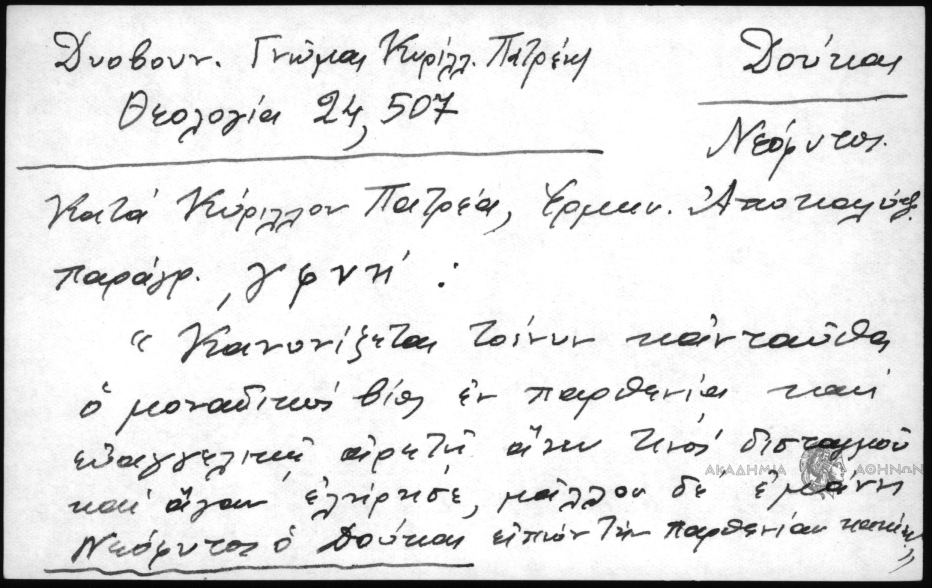 Δυοβουν. Γνῶμαι Κυρίλλ. Πατρέως
Θεολογία 24, 507
Δούκας
Νεόφυτος.
Κατά Κύριλλον Πατρέα, Ἑρμην. Ἀποκαλύψ.
παράγρ. ͵γφνή :
"Κανονίζεται τοίνυν κἀνταῦθα
ὁ μοναδικός βίος ἐν παρθενίᾳ καί
εὐαγγελικῇ ἀρετῇ ἄνευ τινός δισταγμοῦ
καί ἄγαν ἐλήρησε, μᾶλλον δέ ἐμάνη
Νεόφυτος ὁ Δούκας εἰπών τήν παρθενίαν
ΑΚΑΔΗΜΙΑ ΑΘΗΝΩΝ